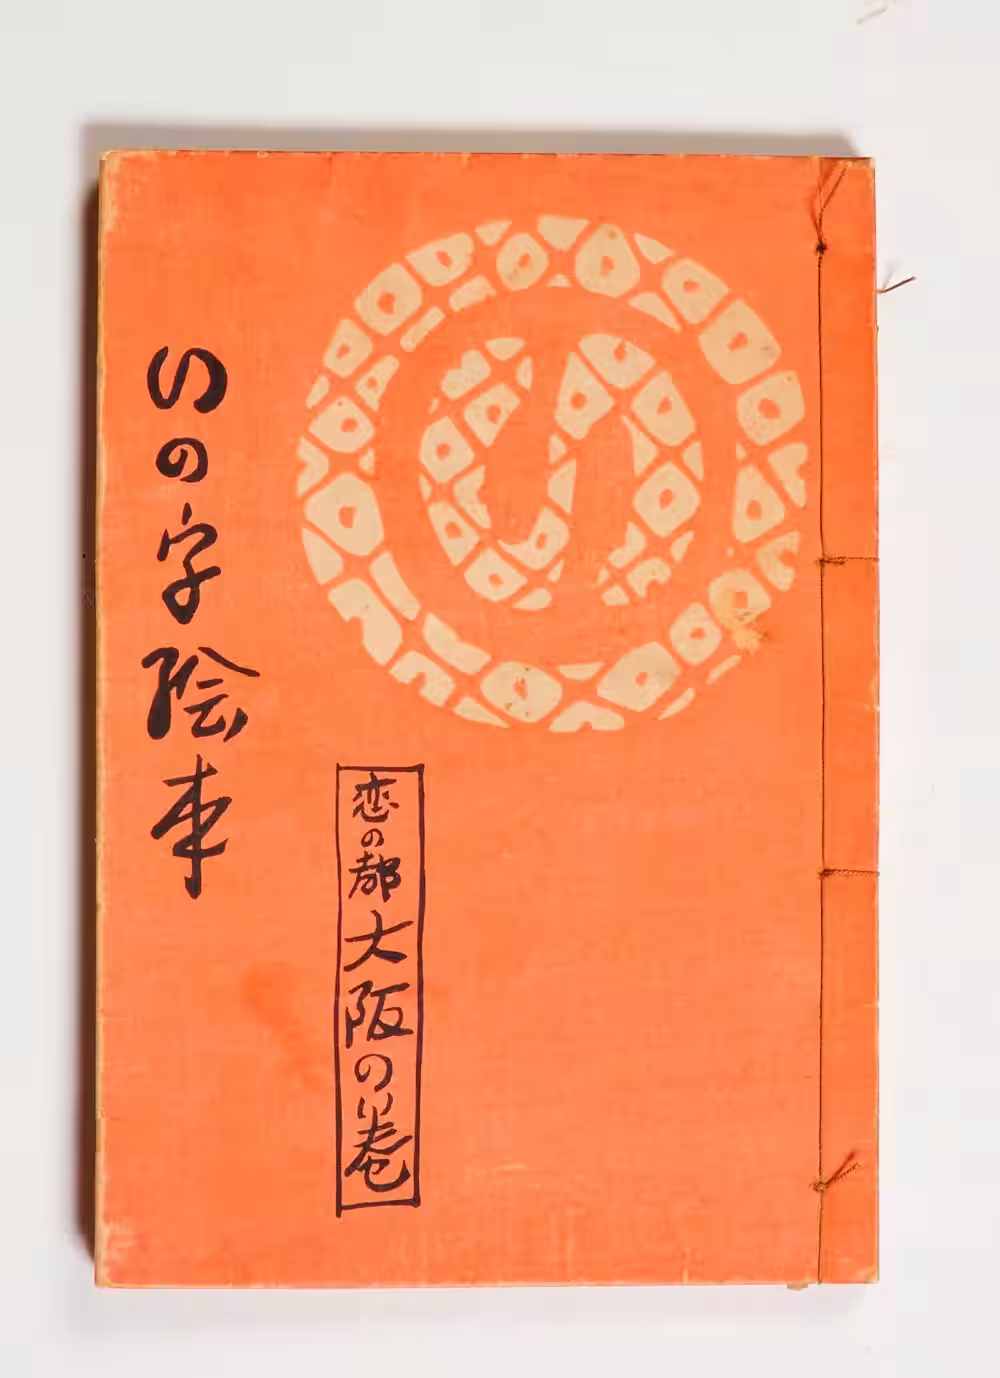 い
いの字絵本
恋の都大阪の巻